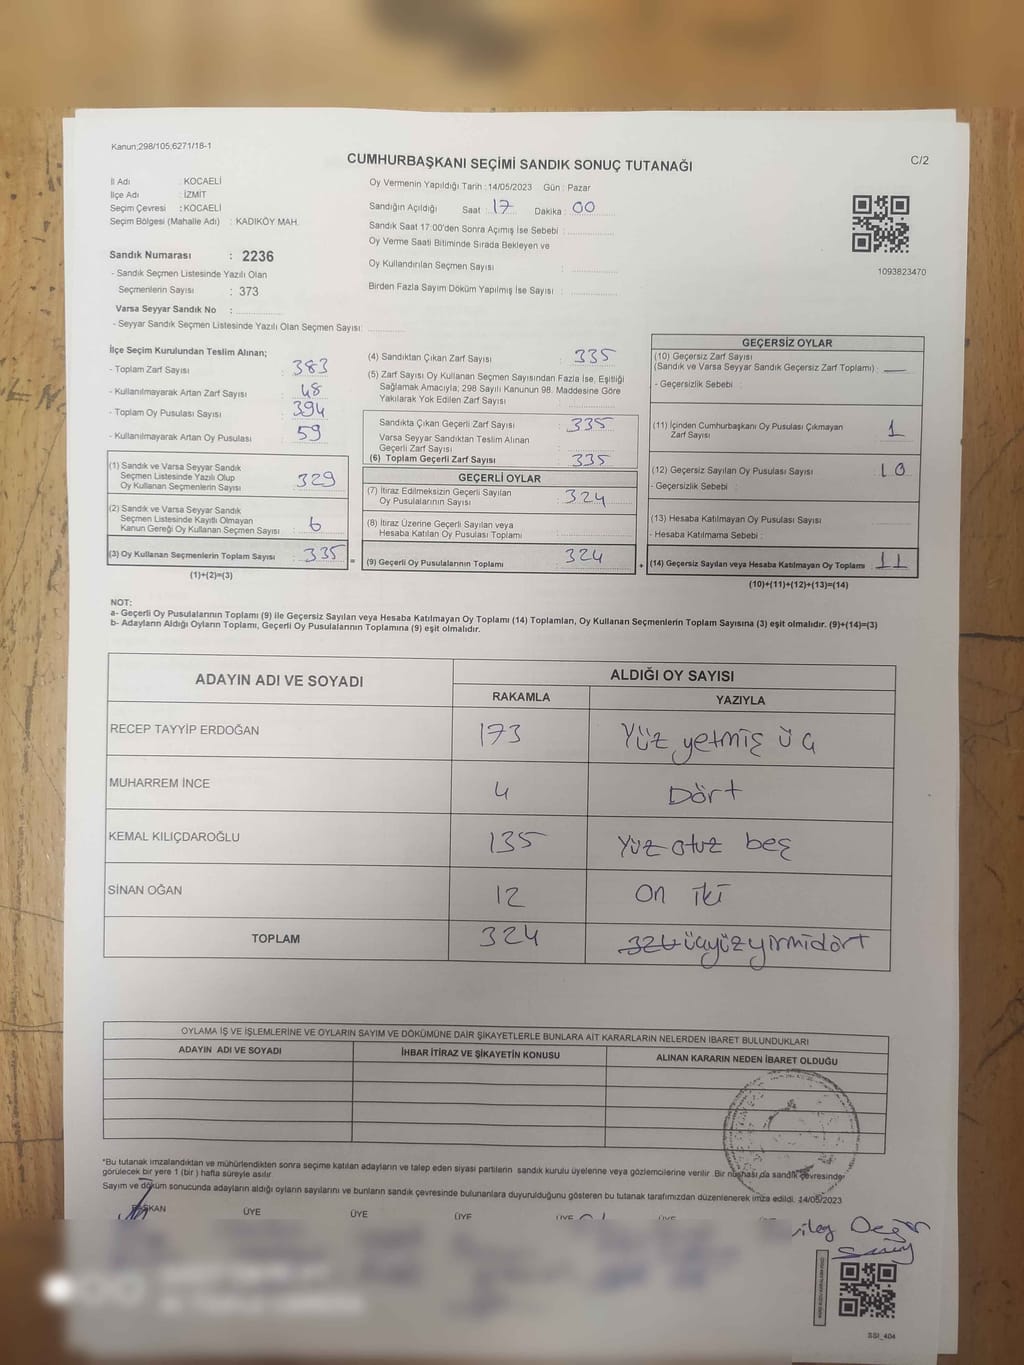 Kanun;298/105;6271/18-1
CUMHURBAŞKANI SEÇİMİ SANDIK SONUÇ TUTANAĞI
C/2
İl Adı : KOCAELİ
İlçe Adı : İZMİT
Seçim Çevresi : KOCAELİ
Seçim Bölgesi (Mahalle Adı) : KADIKÖY MAH.
Oy Vermenin Yapıldığı Tarih : 14/05/2023 Gün : Pazar
Sandığın Açıldığı Saat : 17 Dakika : 00
Sandık Saat 17:00'den Sonra Açımış İse Sebebi :
Oy Verme Saati Bitiminde Sırada Bekleyen ve
Oy Kullandırılan Seçmen Sayısı :
Birden Fazla Sayım Döküm Yapılmış İse Sayısı :
1093823470
Sandık Numarası : 2236
- Sandık Seçmen Listesinde Yazılı Olan
Seçmenlerin Sayısı : 373
Varsa Seyyar Sandık No :
- Seyyar Sandık Seçmen Listesinde Yazılı Olan Seçmen Sayısı:
İlçe Seçim Kurulundan Teslim Alınan;
- Toplam Zarf Sayısı : 383
- Kullanılmayarak Artan Zarf Sayısı : 48
- Toplam Oy Pusulası Sayısı : 394
- Kullanılmayarak Artan Oy Pusulası : 59
(1) Sandık ve Varsa Seyyar Sandık
Seçmen Listesinde Yazılı Olup
Oy Kullanan Seçmenlerin Sayısı : 329
(2) Sandık ve Varsa Seyyar Sandık
Seçmen Listesinde Kayıtlı Olmayan
Kanun Gereği Oy Kullanan Seçmen Sayısı : 6
(3) Oy Kullanan Seçmenlerin Toplam Sayısı : 335
(1)+(2)=(3)
=
(4) Sandıktan Çıkan Zarf Sayısı : 335
(5) Zarf Sayısı Oy Kullanan Seçmen Sayısından Fazla İse, Eşitliği
Sağlamak Amacıyla; 298 Sayılı Kanunun 98. Maddesine Göre
Yakılarak Yok Edilen Zarf Sayısı :
Sandıkta Çıkan Geçerli Zarf Sayısı : 335
Varsa Seyyar Sandıktan Teslim Alınan
Geçerli Zarf Sayısı :
(6) Toplam Geçerli Zarf Sayısı : 335
GEÇERLİ OYLAR
(7) İtiraz Edilmeksizin Geçerli Sayılan
Oy Pusulalarının Sayısı : 324
(8) İtiraz Üzerine Geçerli Sayılan veya
Hesaba Katılan Oy Pusulası Toplamı :
(9) Geçerli Oy Pusulalarının Toplamı : 324
+
GEÇERSİZ OYLAR
(10) Geçersiz Zarf Sayısı
(Sandık ve Varsa Seyyar Sandık Geçersiz Zarf Toplamı) : —
- Geçersizlik Sebebi :
(11) İçinden Cumhurbaşkanı Oy Pusulası Çıkmayan
Zarf Sayısı : 1
(12) Geçersiz Sayılan Oy Pusulası Sayısı : 10
- Geçersizlik Sebebi :
(13) Hesaba Katılmayan Oy Pusulası Sayısı :
- Hesaba Katılmama Sebebi :
(14) Geçersiz Sayılan veya Hesaba Katılmayan Oy Toplamı : 11
(10)+(11)+(12)+(13)=(14)
NOT:
a- Geçerli Oy Pusulalarının Toplamı (9) ile Geçersiz Sayılan veya Hesaba Katılmayan Oy Toplamı (14) Toplamları, Oy Kullanan Seçmenlerin Toplam Sayısına (3) eşit olmalıdır. (9)+(14)=(3)
b- Adayların Aldığı Oyların Toplamı, Geçerli Oy Pusulalarının Toplamına (9) eşit olmalıdır.
ADAYIN ADI VE SOYADI
ALDIĞI OY SAYISI
RAKAMLA YAZIYLA
RECEP TAYYİP ERDOĞAN 173 Yüz yetmiş üç
MUHARREM İNCE 4 Dört
KEMAL KILIÇDAROĞLU 135 Yüz otuz beş
SİNAN OĞAN 12 On iki
TOPLAM 324 324 üçyüzyirmidört
OYLAMA İŞ VE İŞLEMLERİNE VE OYLARIN SAYIM VE DÖKÜMÜNE DAİR ŞİKAYETLERLE BUNLARA AİT KARARLARIN NELERDEN İBARET BULUNDUKLARI
ADAYIN ADI VE SOYADI İHBAR İTİRAZ VE ŞİKAYETİN KONUSU ALINAN KARARIN NEDEN İBARET OLDUĞU
*Bu tutanak imzalandıktan ve mühürlendikten sonra seçime katılan adayların ve talep eden siyasi partilerin sandık kurulu üyelerine veya gözlemcilerine verilir. Bir nüshası da sandık çevresinde
görülecek bir yere 1 (bir ) hafta süreyle asılır.
Sayım ve döküm sonucunda adayların aldığı oyların sayılarını ve bunların sandık çevresinde bulunanlara duyurulduğunu gösteren bu tutanak tarafımızdan düzenlenerek imza edildi. 14/05/2023
BAŞKAN ÜYE ÜYE ÜYE ÜYE
SSI_404